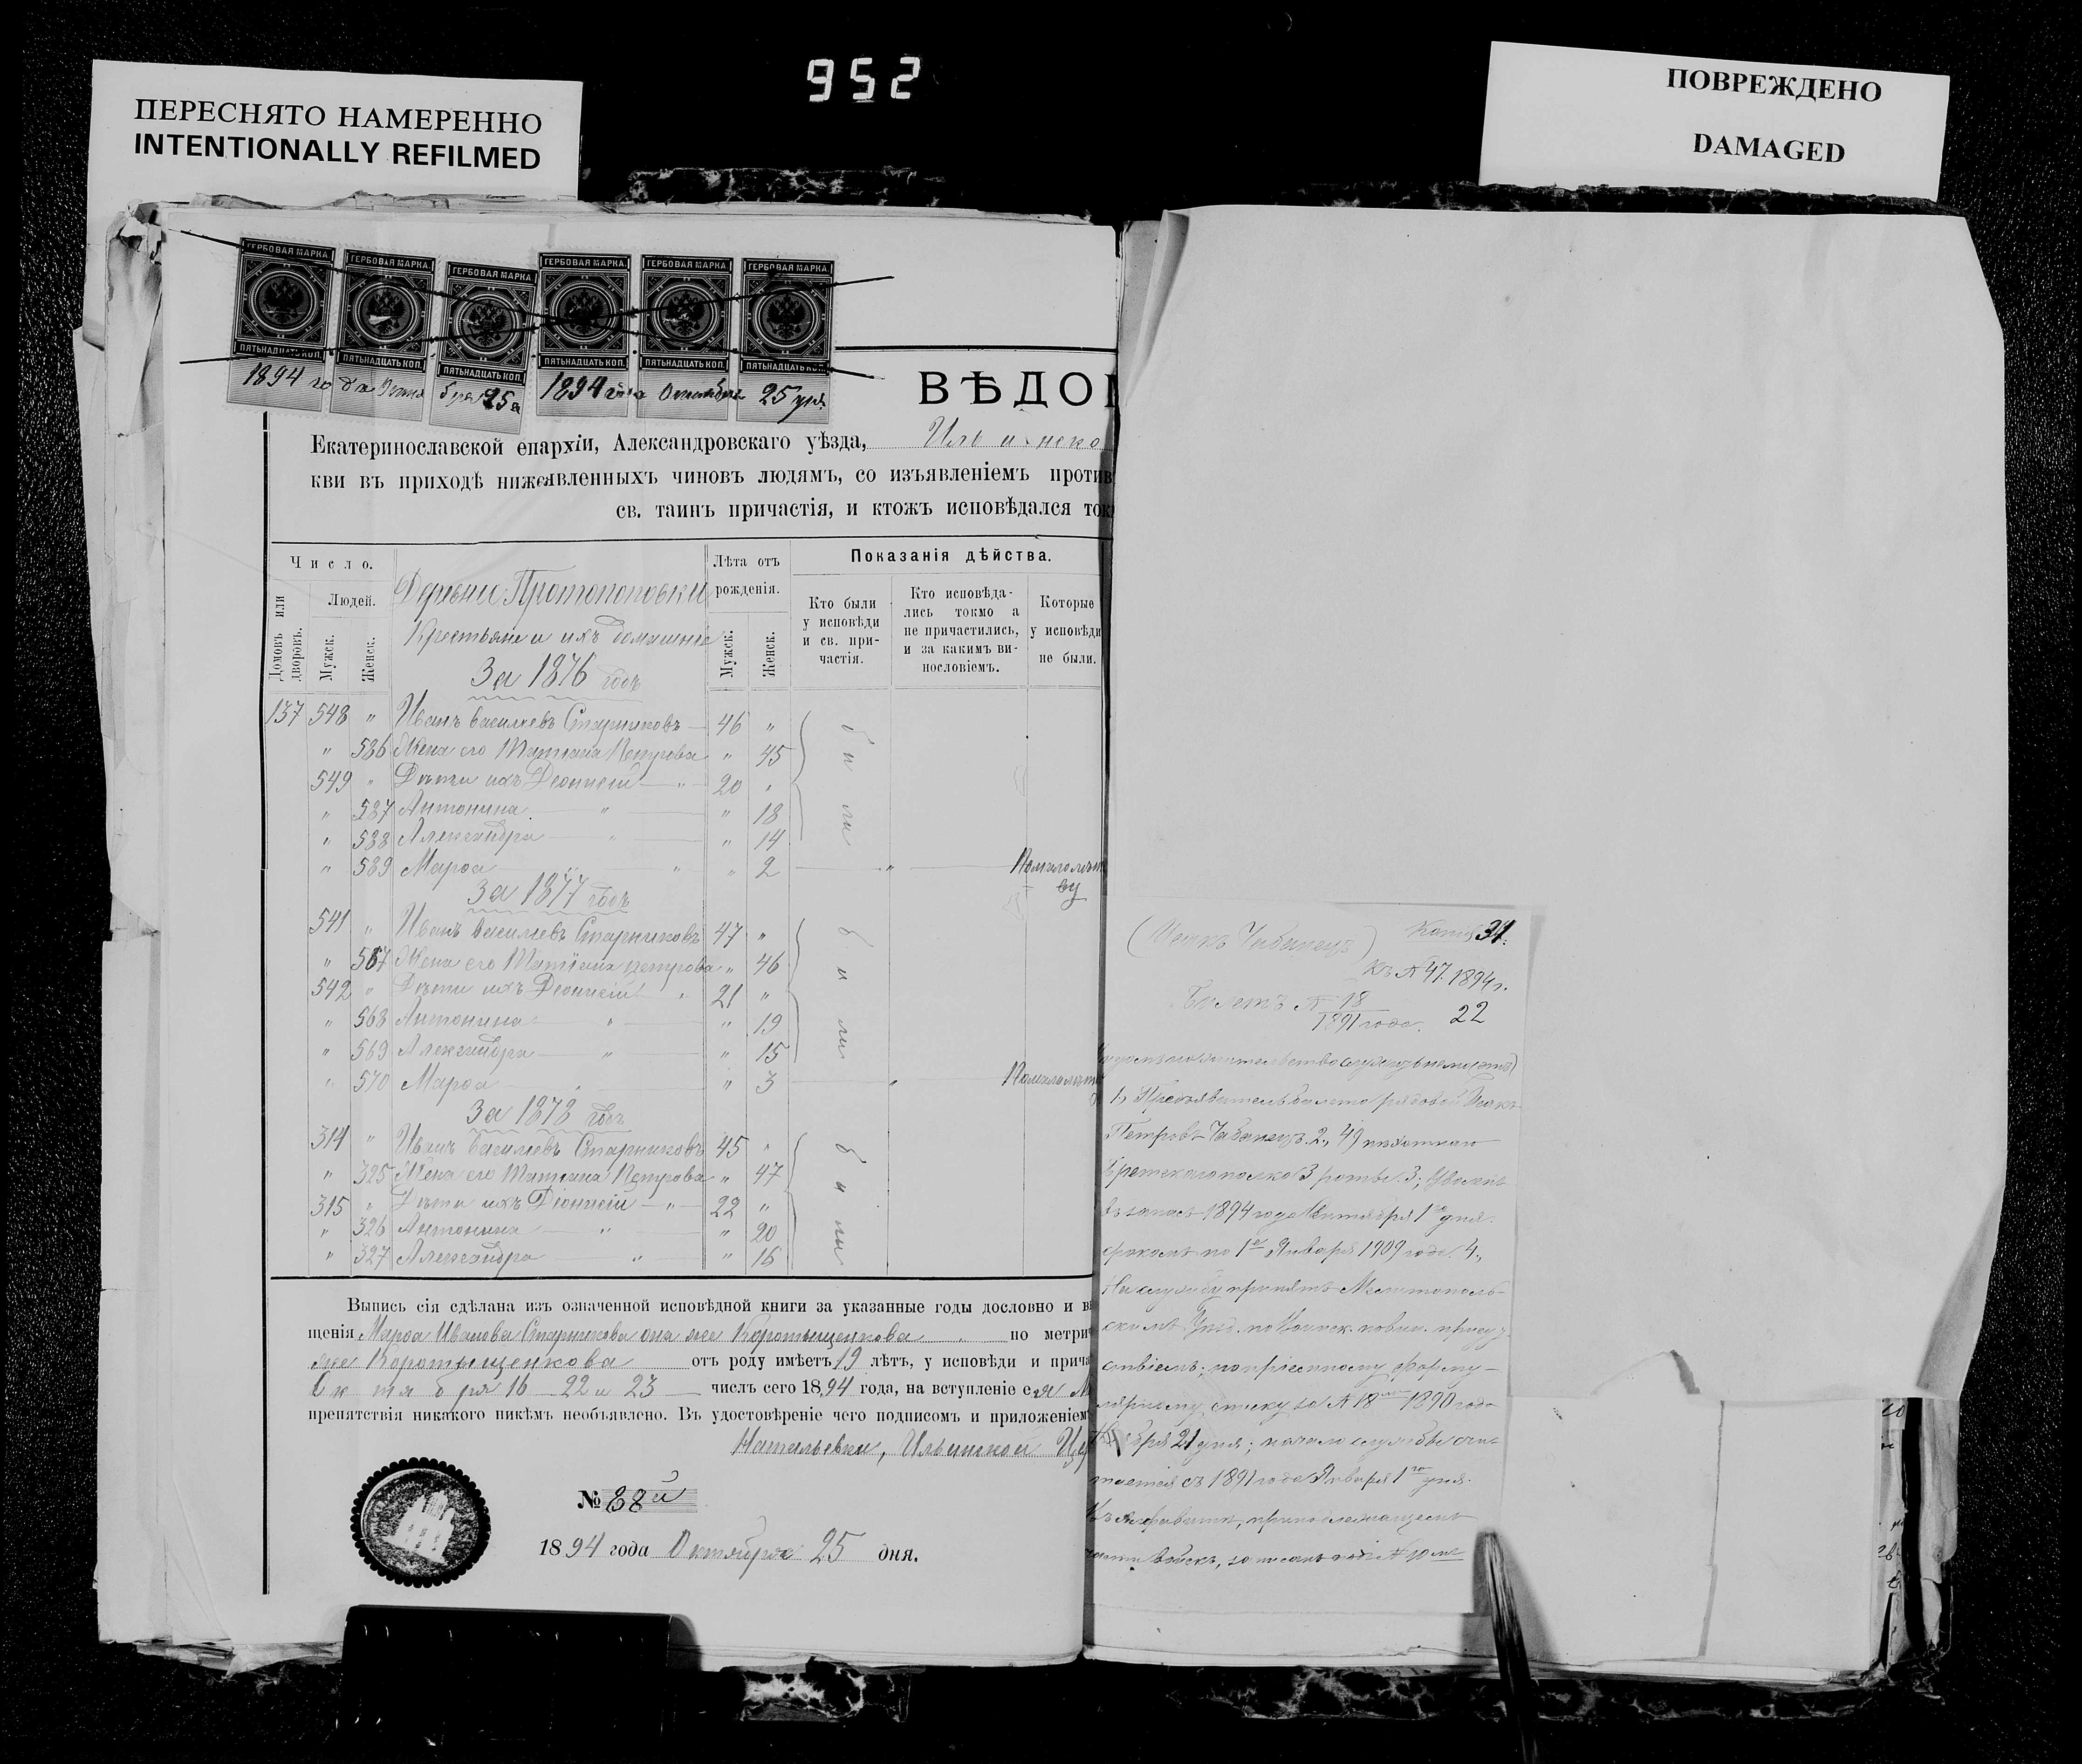 952
ПЕРЕСНЯТО НАМЕРЕННО
INTENTIONALLY REFILMED
ПОВРЕЖДЕНО
DAMAGED
ГЕРБОВАЯ МАРКА. ГЕРБОВАЯ МАРКА. ГЕРБОВАЯ МАРКА. ГЕРБОВАЯ МАРКА. ГЕРБОВАЯ МАРКА. ГЕРБОВАЯ МАРКА.
ПЯТЬНАДЦАТЬ КОП. ПЯТЬНАДЦАТЬ КОП. ПЯТЬНАДЦАТЬ КОП. ПЯТЬНАДЦАТЬ КОП. ПЯТЬНАДЦАТЬ КОП. ПЯТЬНАДЦАТЬ КОП.
1894 го да 25 1894 года Октября 25 дня
ВѢДОМ
Екатеринославской епархіи, Александровскаго уѣзда,
кви въ приходѣ нижеявленныхъ чиновъ людямъ, со изъявленіемъ против
св. таинъ причастія, и ктожъ исповѣдался ток
Число.
Домовъ или дворовъ.
Людей.
Мужск.
Женск.
Деревни Протопоповки
Крестьяне и ихъ домашніе
Лѣта отъ рожденія.
Мужск.
Женск.
Показанія дѣйства.
Кто были у исповѣди и св. причастія.
Кто исповѣдались токмо а не причастились, и за какимъ винословіемъ.
Которые у исповѣди не были.
За 1876 годъ
137 548 " Иванъ Васильевъ Старчиковъ 46 "
" 586 Жена его Татіана Петрова " 45
549 " Дѣти ихъ Діонисій " 20 "
" 587 Антонина " " 18
" 588 Александра " " 14
" 589 Марѳа " " 2 "
были
За 1877 годъ
541 " Иванъ Васильевъ Старчиковъ 47 "
" 567 Жена его Татіана Петрова " 46
542 " Дѣти ихъ Діонисій " 21 "
" 568 Антонина " " 19
" 569 Александра " " 15
" 570 Марѳа " " 3 "
были
За 1878 годъ
314 " Иванъ Васильевъ Старчиковъ 45 "
" 325 Жена его Татіана Петрова " 47
315 " Дѣти ихъ Діонисій " 22 "
" 326 Антонина " " 20
" 327 Александра " " 16
были
Выпись сія сдѣлана изъ означенной исповѣдной книги за указанные годы дословно и в
щенія Марѳа Иванова Старчикова она же Коротыщенкова по метри
же Коротыщенкова отъ роду имѣетъ 19 лѣтъ, у исповѣди и прича
Октября 16 22 и 23 числъ сего 1894 года, на вступленіе ея
препятствія никакого никѣмъ необъявлено. Въ удостовѣреніе чего подписомъ и приложеніем
Натальевки, Ильинской Це
№ 88й
1894 года Октября 25 дня.
Копія 31.
(Исакъ Чабанецъ)
Къ № 47. 1894 г.
Билетъ № 18
1891 года. 22
1, Предъявитель билета рядовой Исакъ
Петровъ Чабанецъ. 2, 49 пѣхотнаго
Брестскаго полка 3 роты. 3, Уволенъ
въ запасъ 1894 года Сентября 1го дня.
срокомъ по 1е Января 1909 года. 4,
На службу принятъ Мелитополь-
скимъ Уѣзд. по Воинск. повин. присут
ствіемъ; по пріемному форму-
лярному списку за № 18 1890 года
бря 21 дня; начало службы счи-
тается съ 1891 года Января 1го дня.
войскъ, записанъ № 10